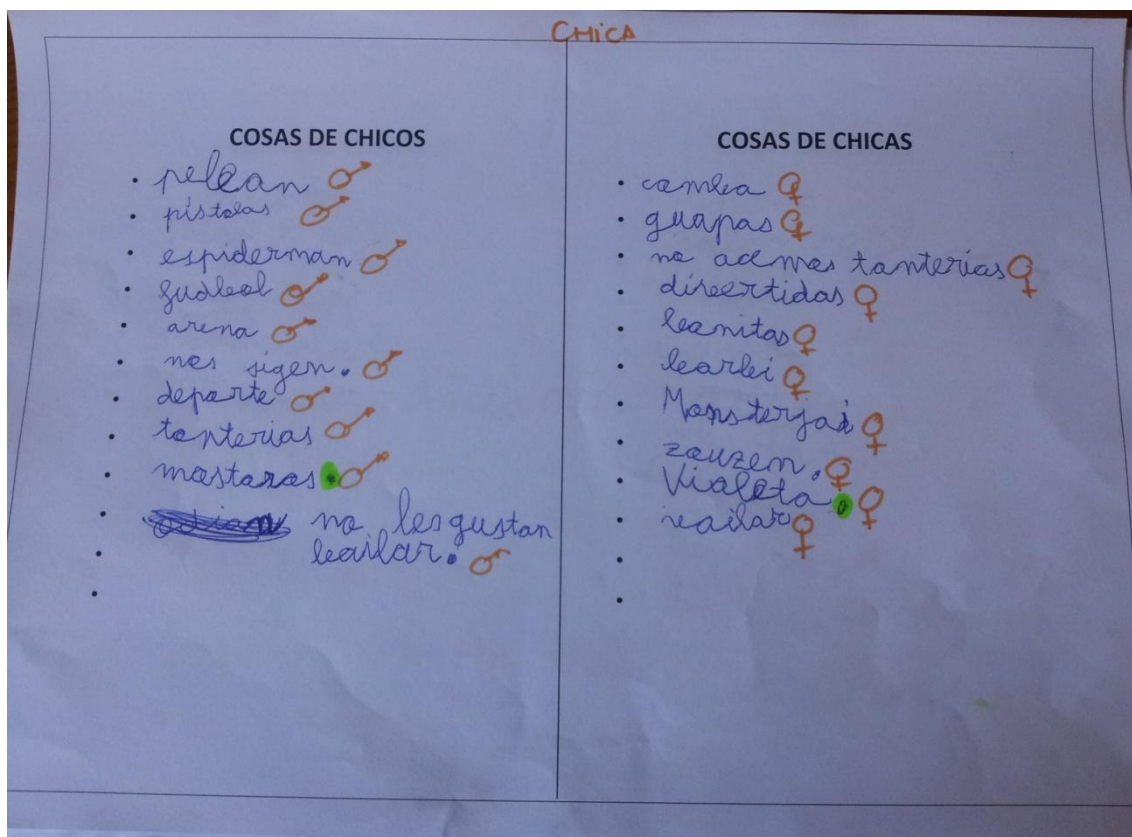 CHICA
COSAS DE CHICOS
pelean
pistolas
espiderman
fudbol
arena
nos sigen.
deporte
tonterias
mostaros.
odian no les gustan
bailar.
COSAS DE CHICAS
comba
guapas
no acemos tonterias
divertidas
bonitas
barbi
Monsterjai
zouzem.
Violeta
vailar